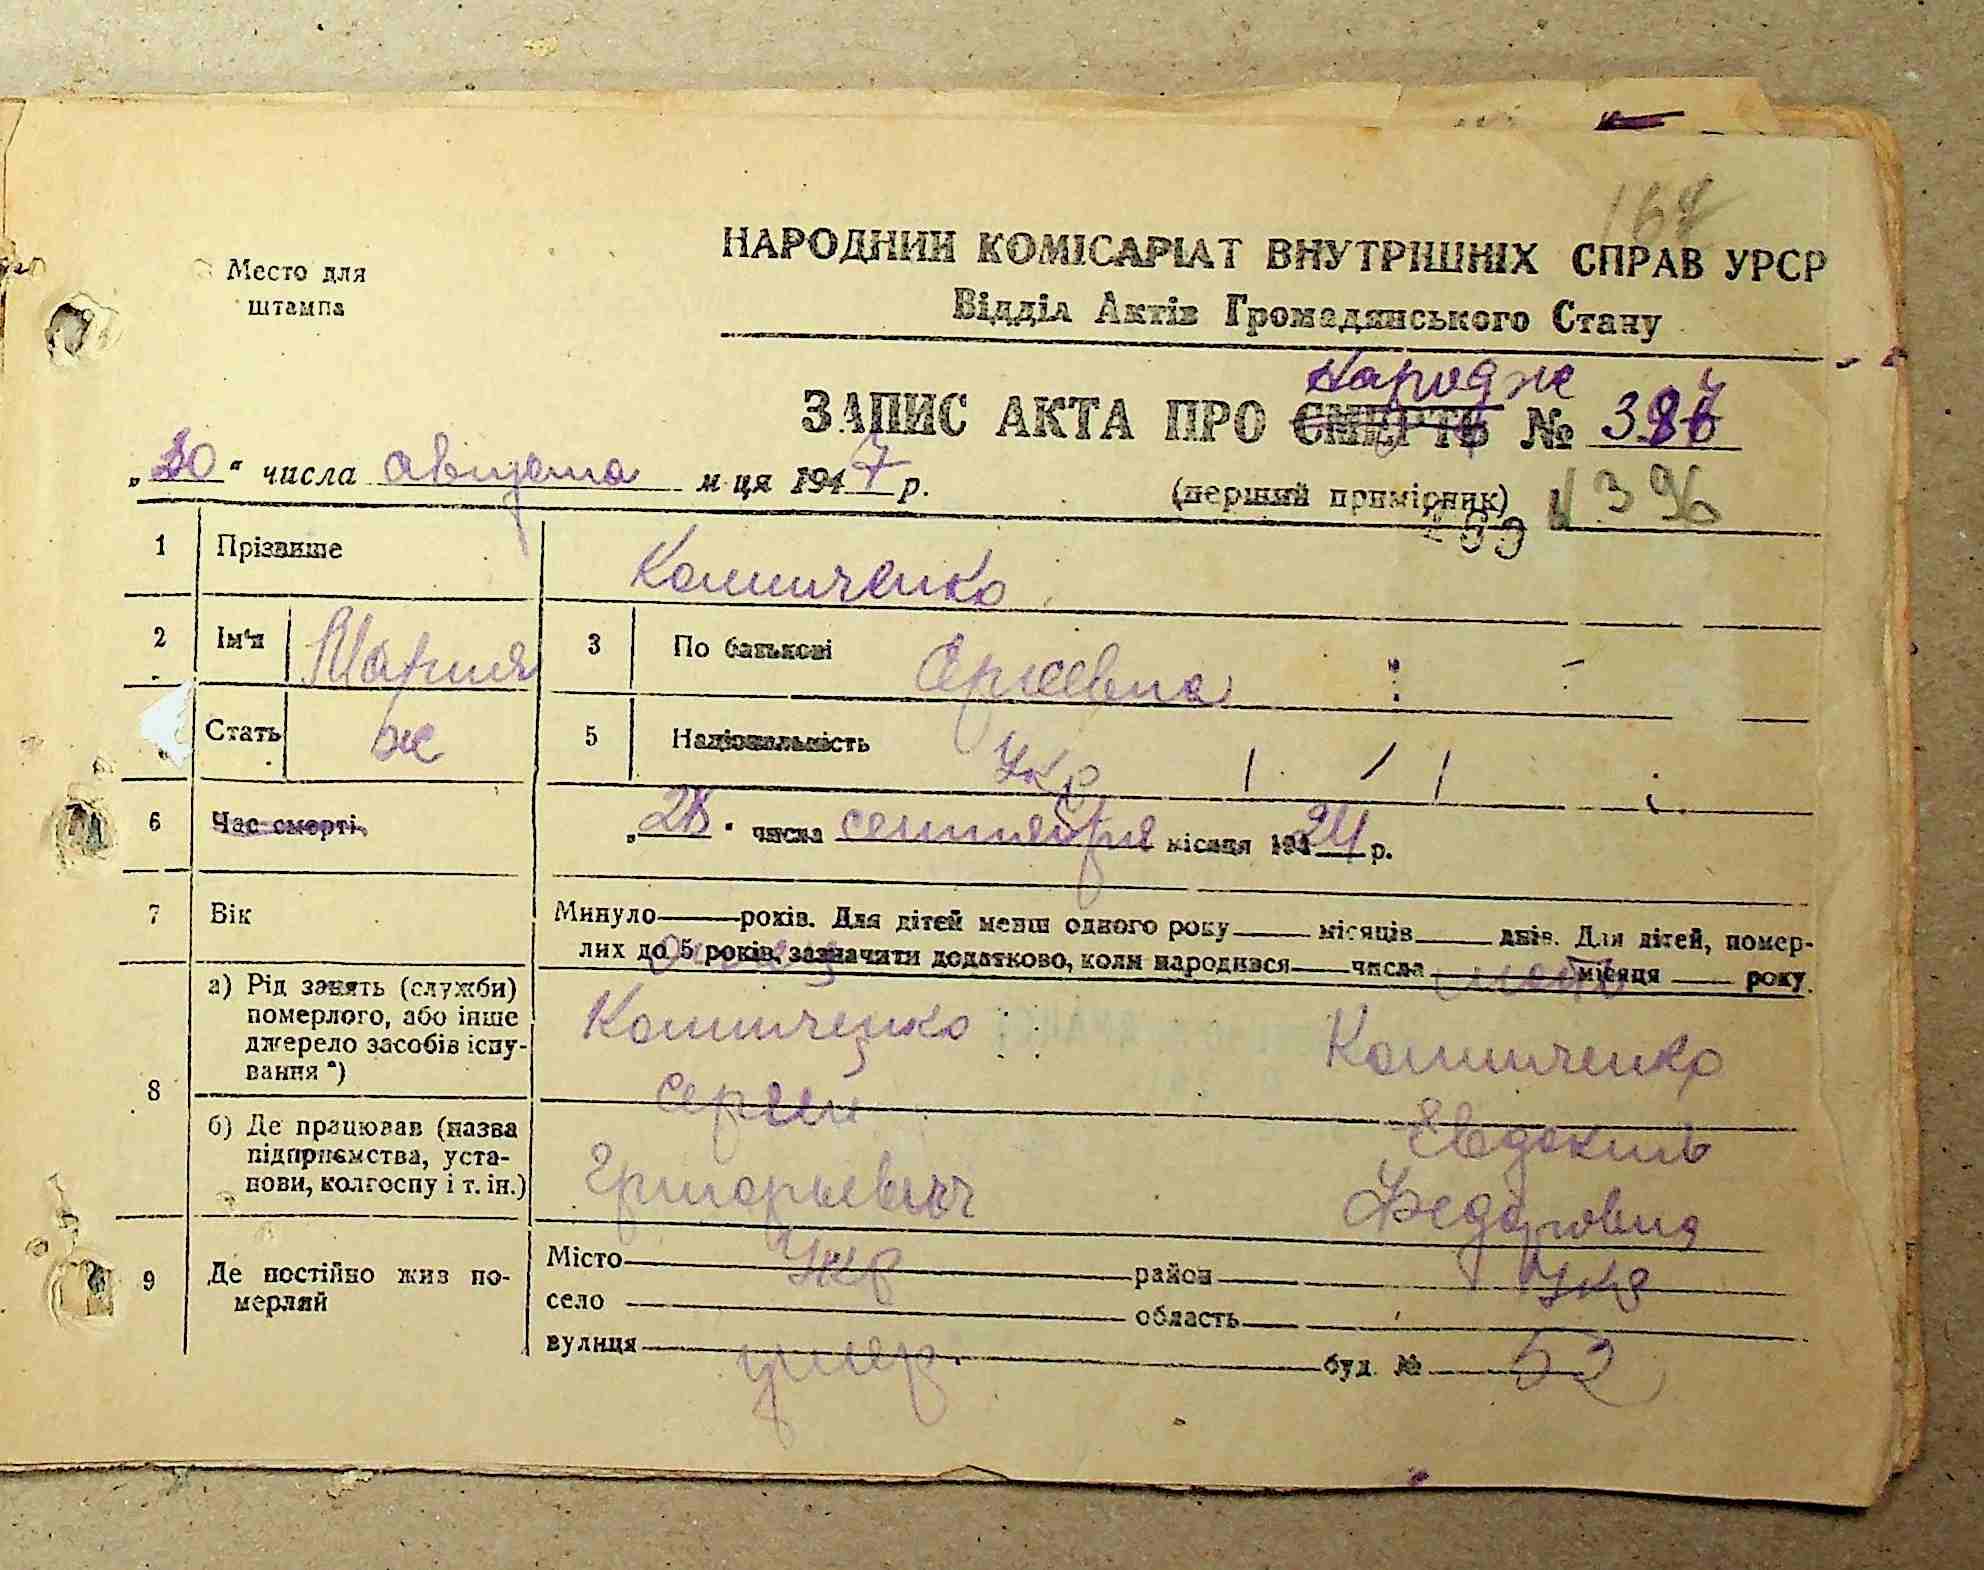 168
Место для
штампа
НАРОДНИЙ КОМІСАРІАТ ВНУТРІШНІХ СПРАВ УРСР
Відділ Актів Громадянського Стану
Народж
ЗАПИС АКТА ПРО СМЕРТЬ № 387
„30“ числа августа м-ця 1947 р.
(перший примірник) 396
1 Прізвище Компиченко
2 Ім'я Мария 3 По батькові Сергеевна
Стать ж 5 Національність Укр
6 Час смерті „28“ числа сентября місяця 1924 р.
7 Вік Минуло рокiв. Для дітей менш одного року місяців днів. Для дітей, помер-
лих до 5 років, зазначити додатково, коли народився числа місяця року.
отец мать
8 а) Рід занять (служби)
померлого, або інше
джерело засобів існу-
вання *)
Компиченко Компиченко
Сергей Евдокия
б) Де працював (назва
підприємства, уста-
нови, колгоспу і т. ін.)
Григорьевич Федоровна
9 Де постійно жив по-
мерлий
Місто Укр район Укр
село область
вулиця умер. буд. № 52